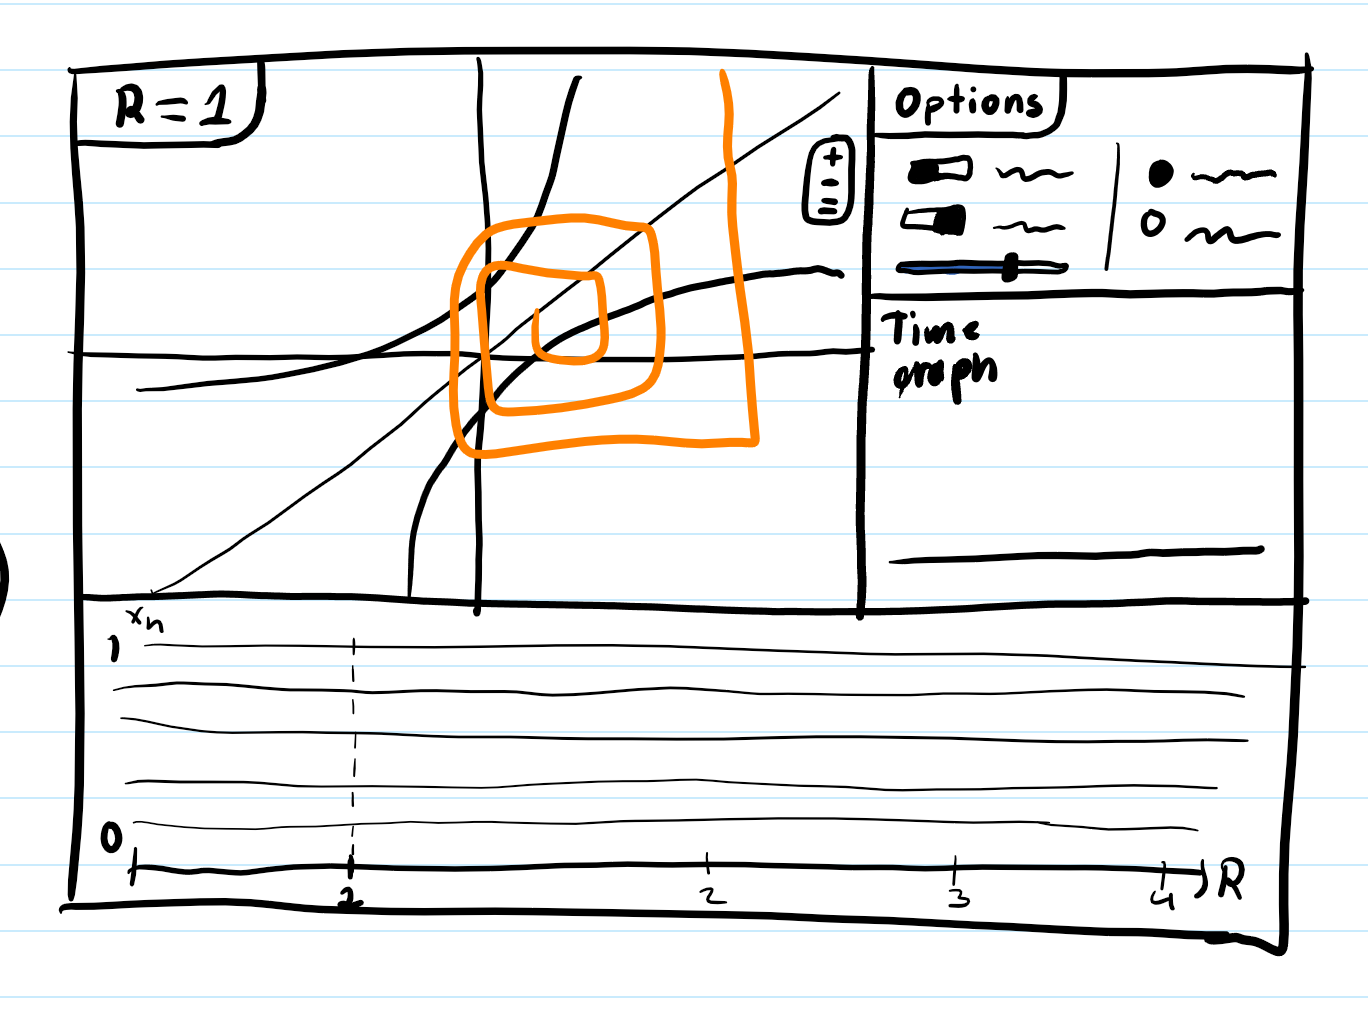 R = 1
Options
+
-
=
Time
graph
xn
1
0
1 2 3 4 R